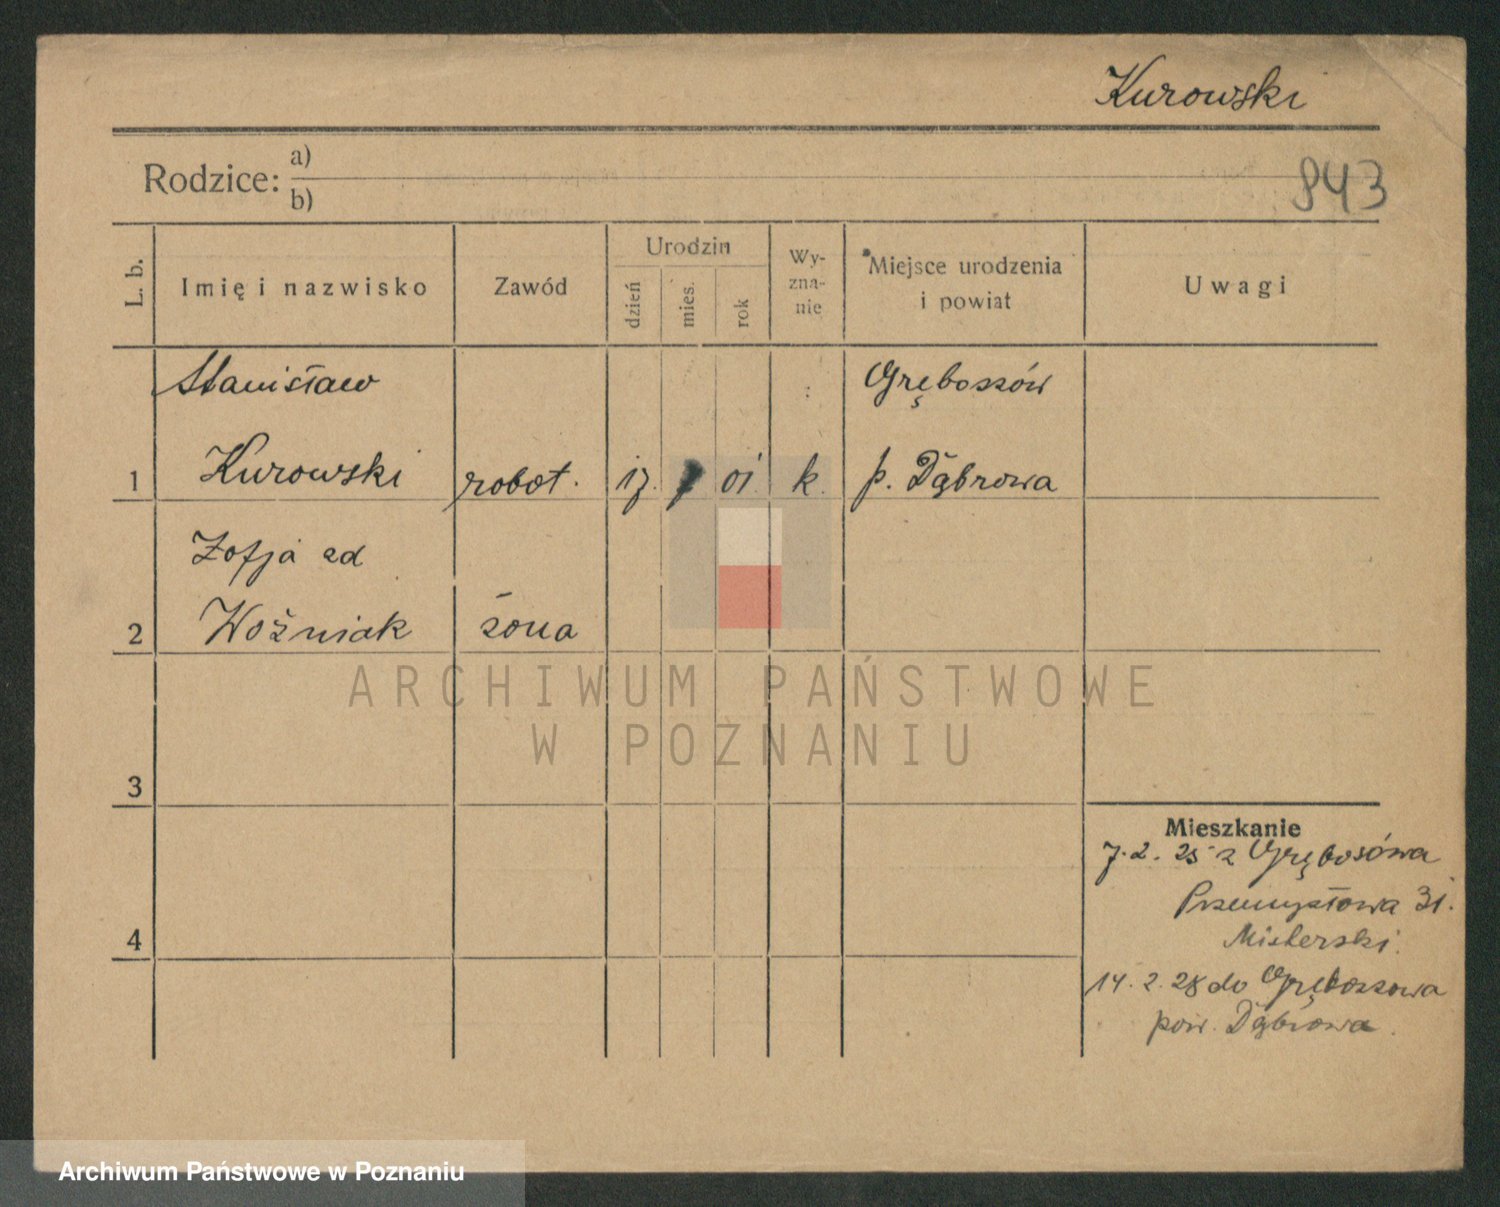 Kurowski
Rodzice: a)
b)
843
L. b.
Imię i nazwisko
Zawód
Urodzin
dzień
mies.
rok
Wy-
zna-
nie
Miejsce urodzenia
i powiat
Uwagi
Stanisław
Gręboszów
1 Kurowski robot. 17. 01. k. p. Dąbrowa
Zofja zd
2 Woźniak żona
ARCHIWUM PAŃSTWOWE
W POZNANIU
3
Mieszkanie
7. 2. 25 z Grębosówa
Przemysłowa 31.
4
Misterski.
14. 2. 28 do Gręboszowa
pow. Dąbrowa.
Archiwum Państwowe w Poznaniu